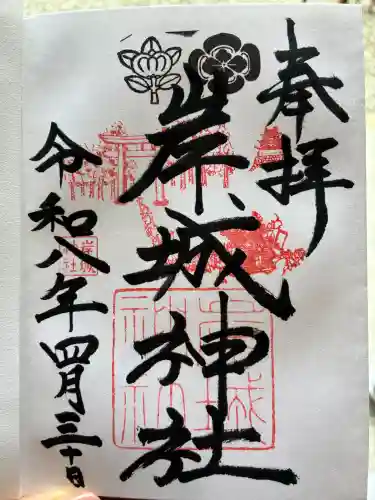 奉拝
岸城神社
令和八年四月三十日
岸城
神社